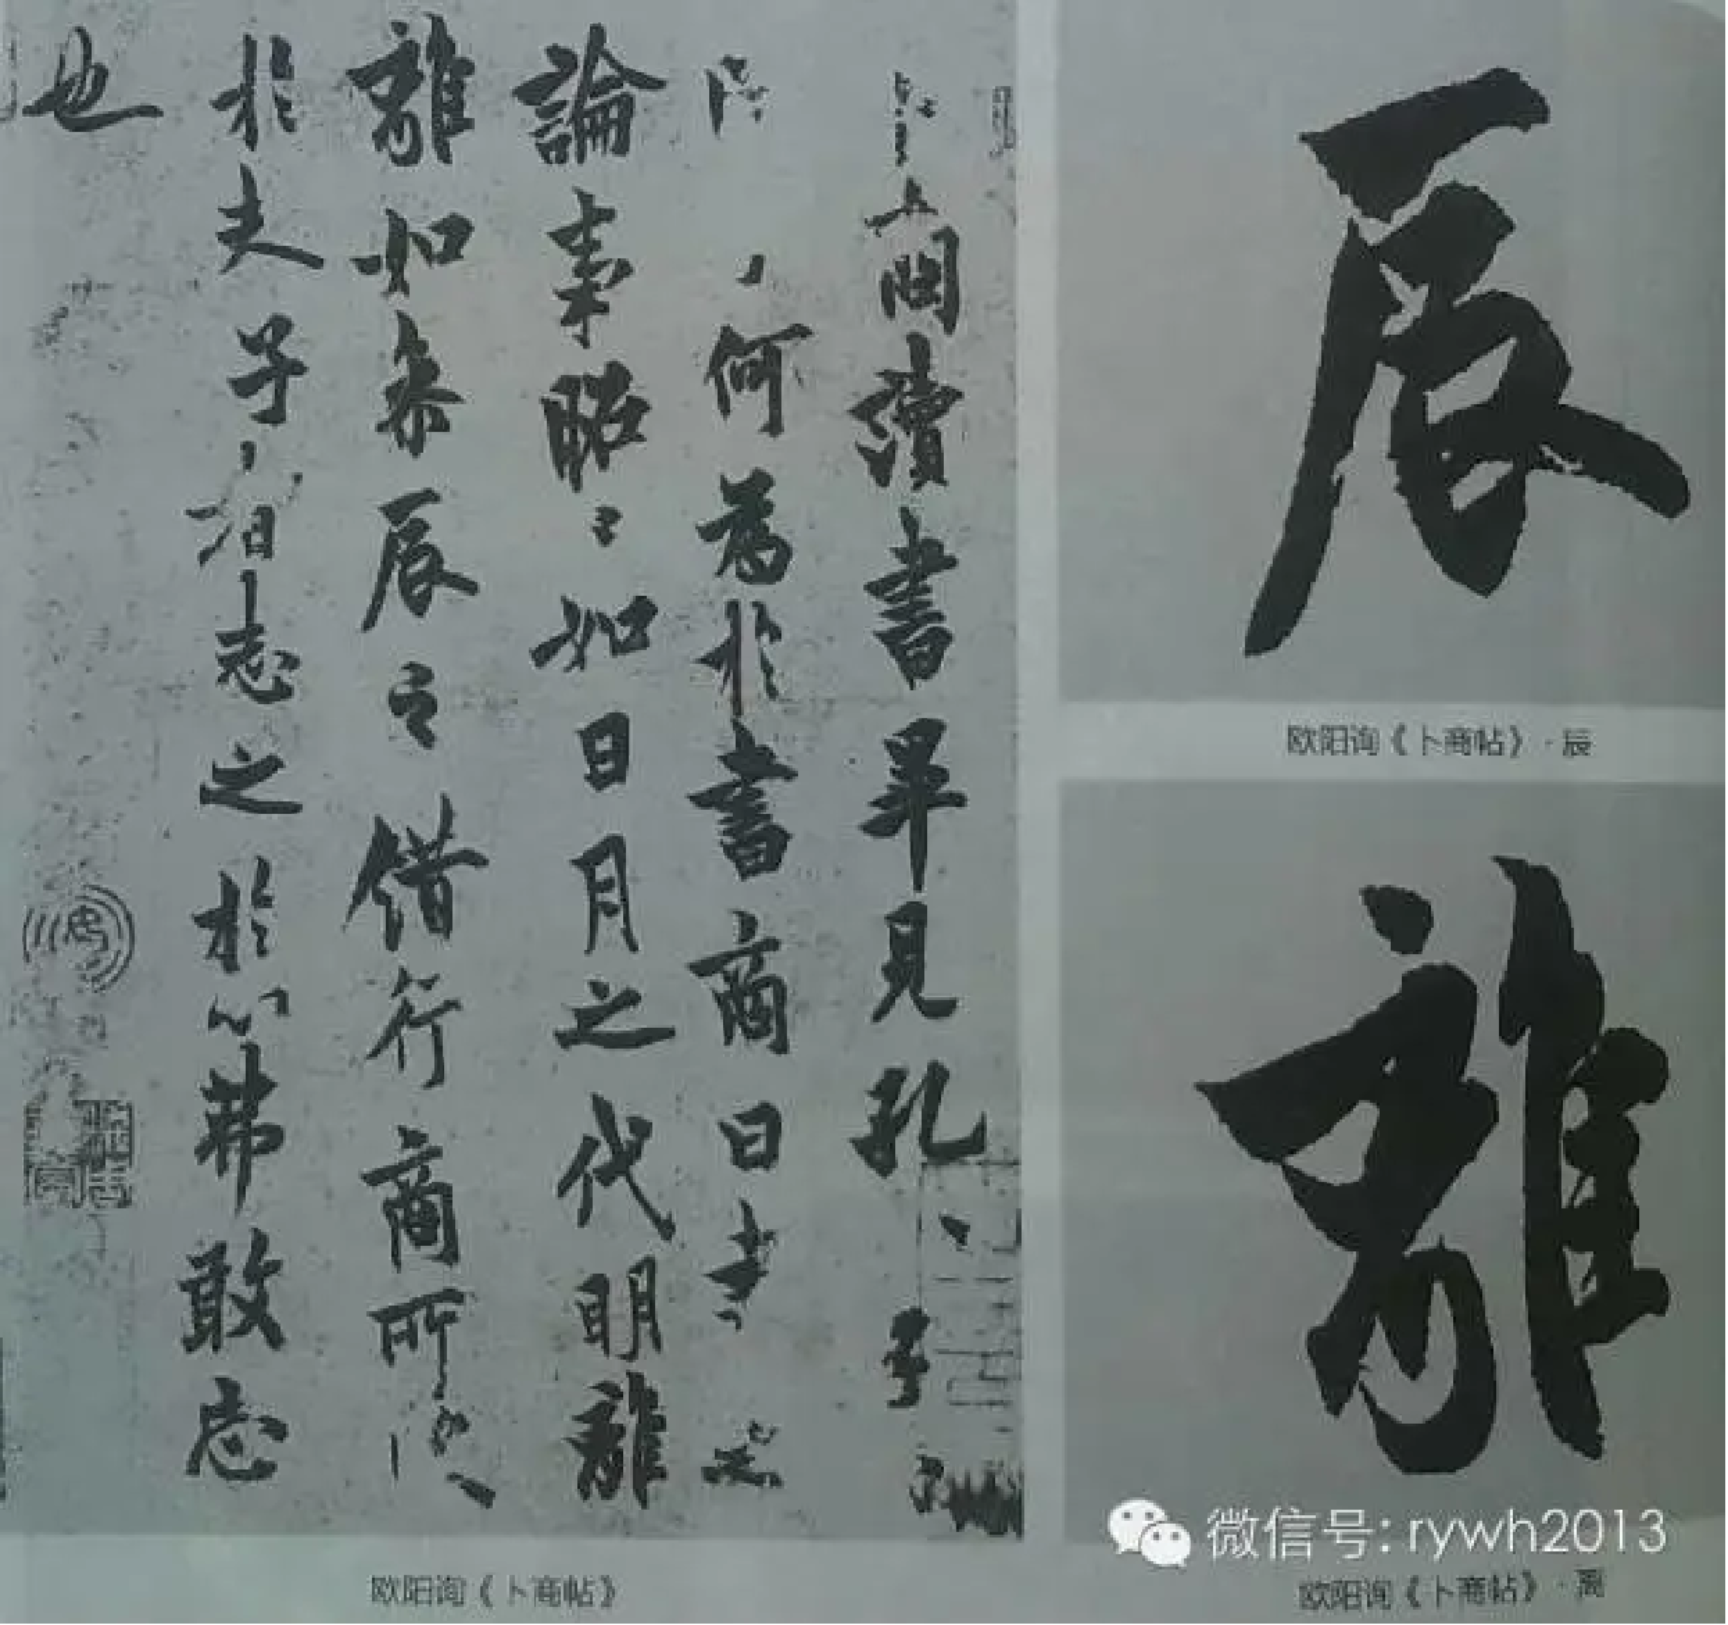 商讀書畢見孔子
何為於書商曰書
論事昭〻如日月之代明離
離如參辰之錯行商所
於夫子者志之於心弗敢忘
也
欧阳询《卜商帖》
欧阳询《卜商帖》·辰
微信号: rywh2013
欧阳询《卜商帖》·离